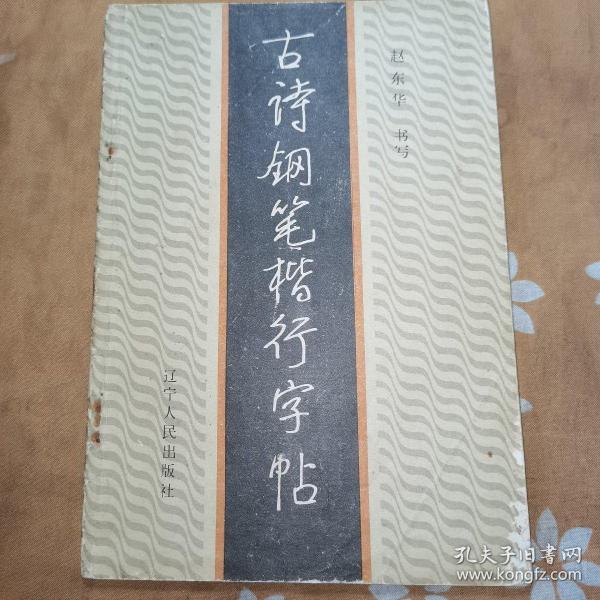 古诗钢笔楷行字帖
赵东华 书写
辽宁人民出版社
孔夫子旧书网
www.kongfz.com